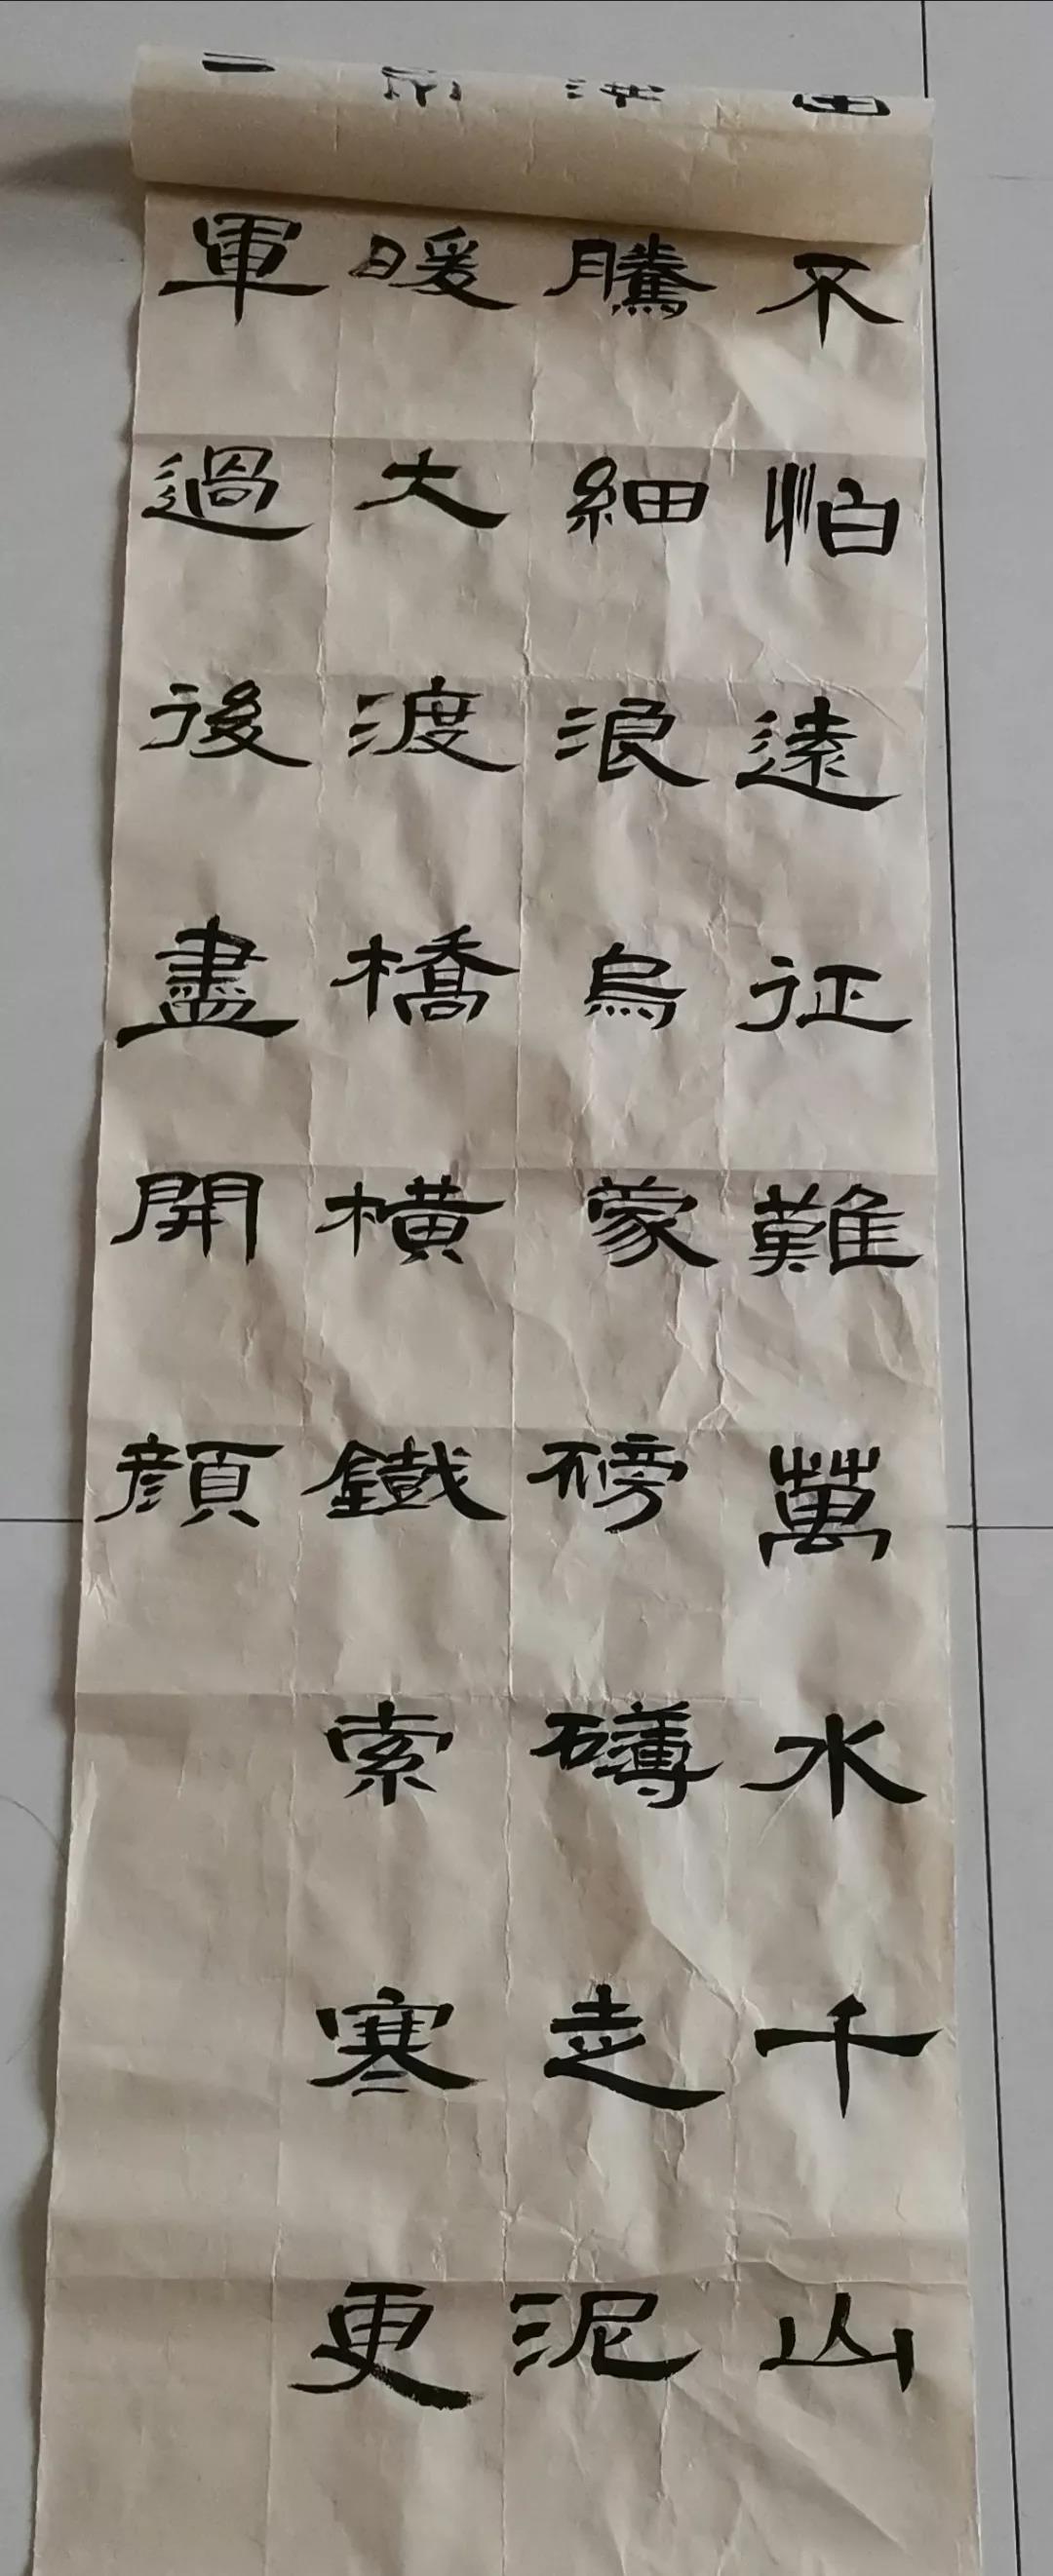 不怕遠征難萬水千山
騰細浪烏蒙磅礴走泥
暖大渡橋橫鐵索寒更
軍過後盡開顔